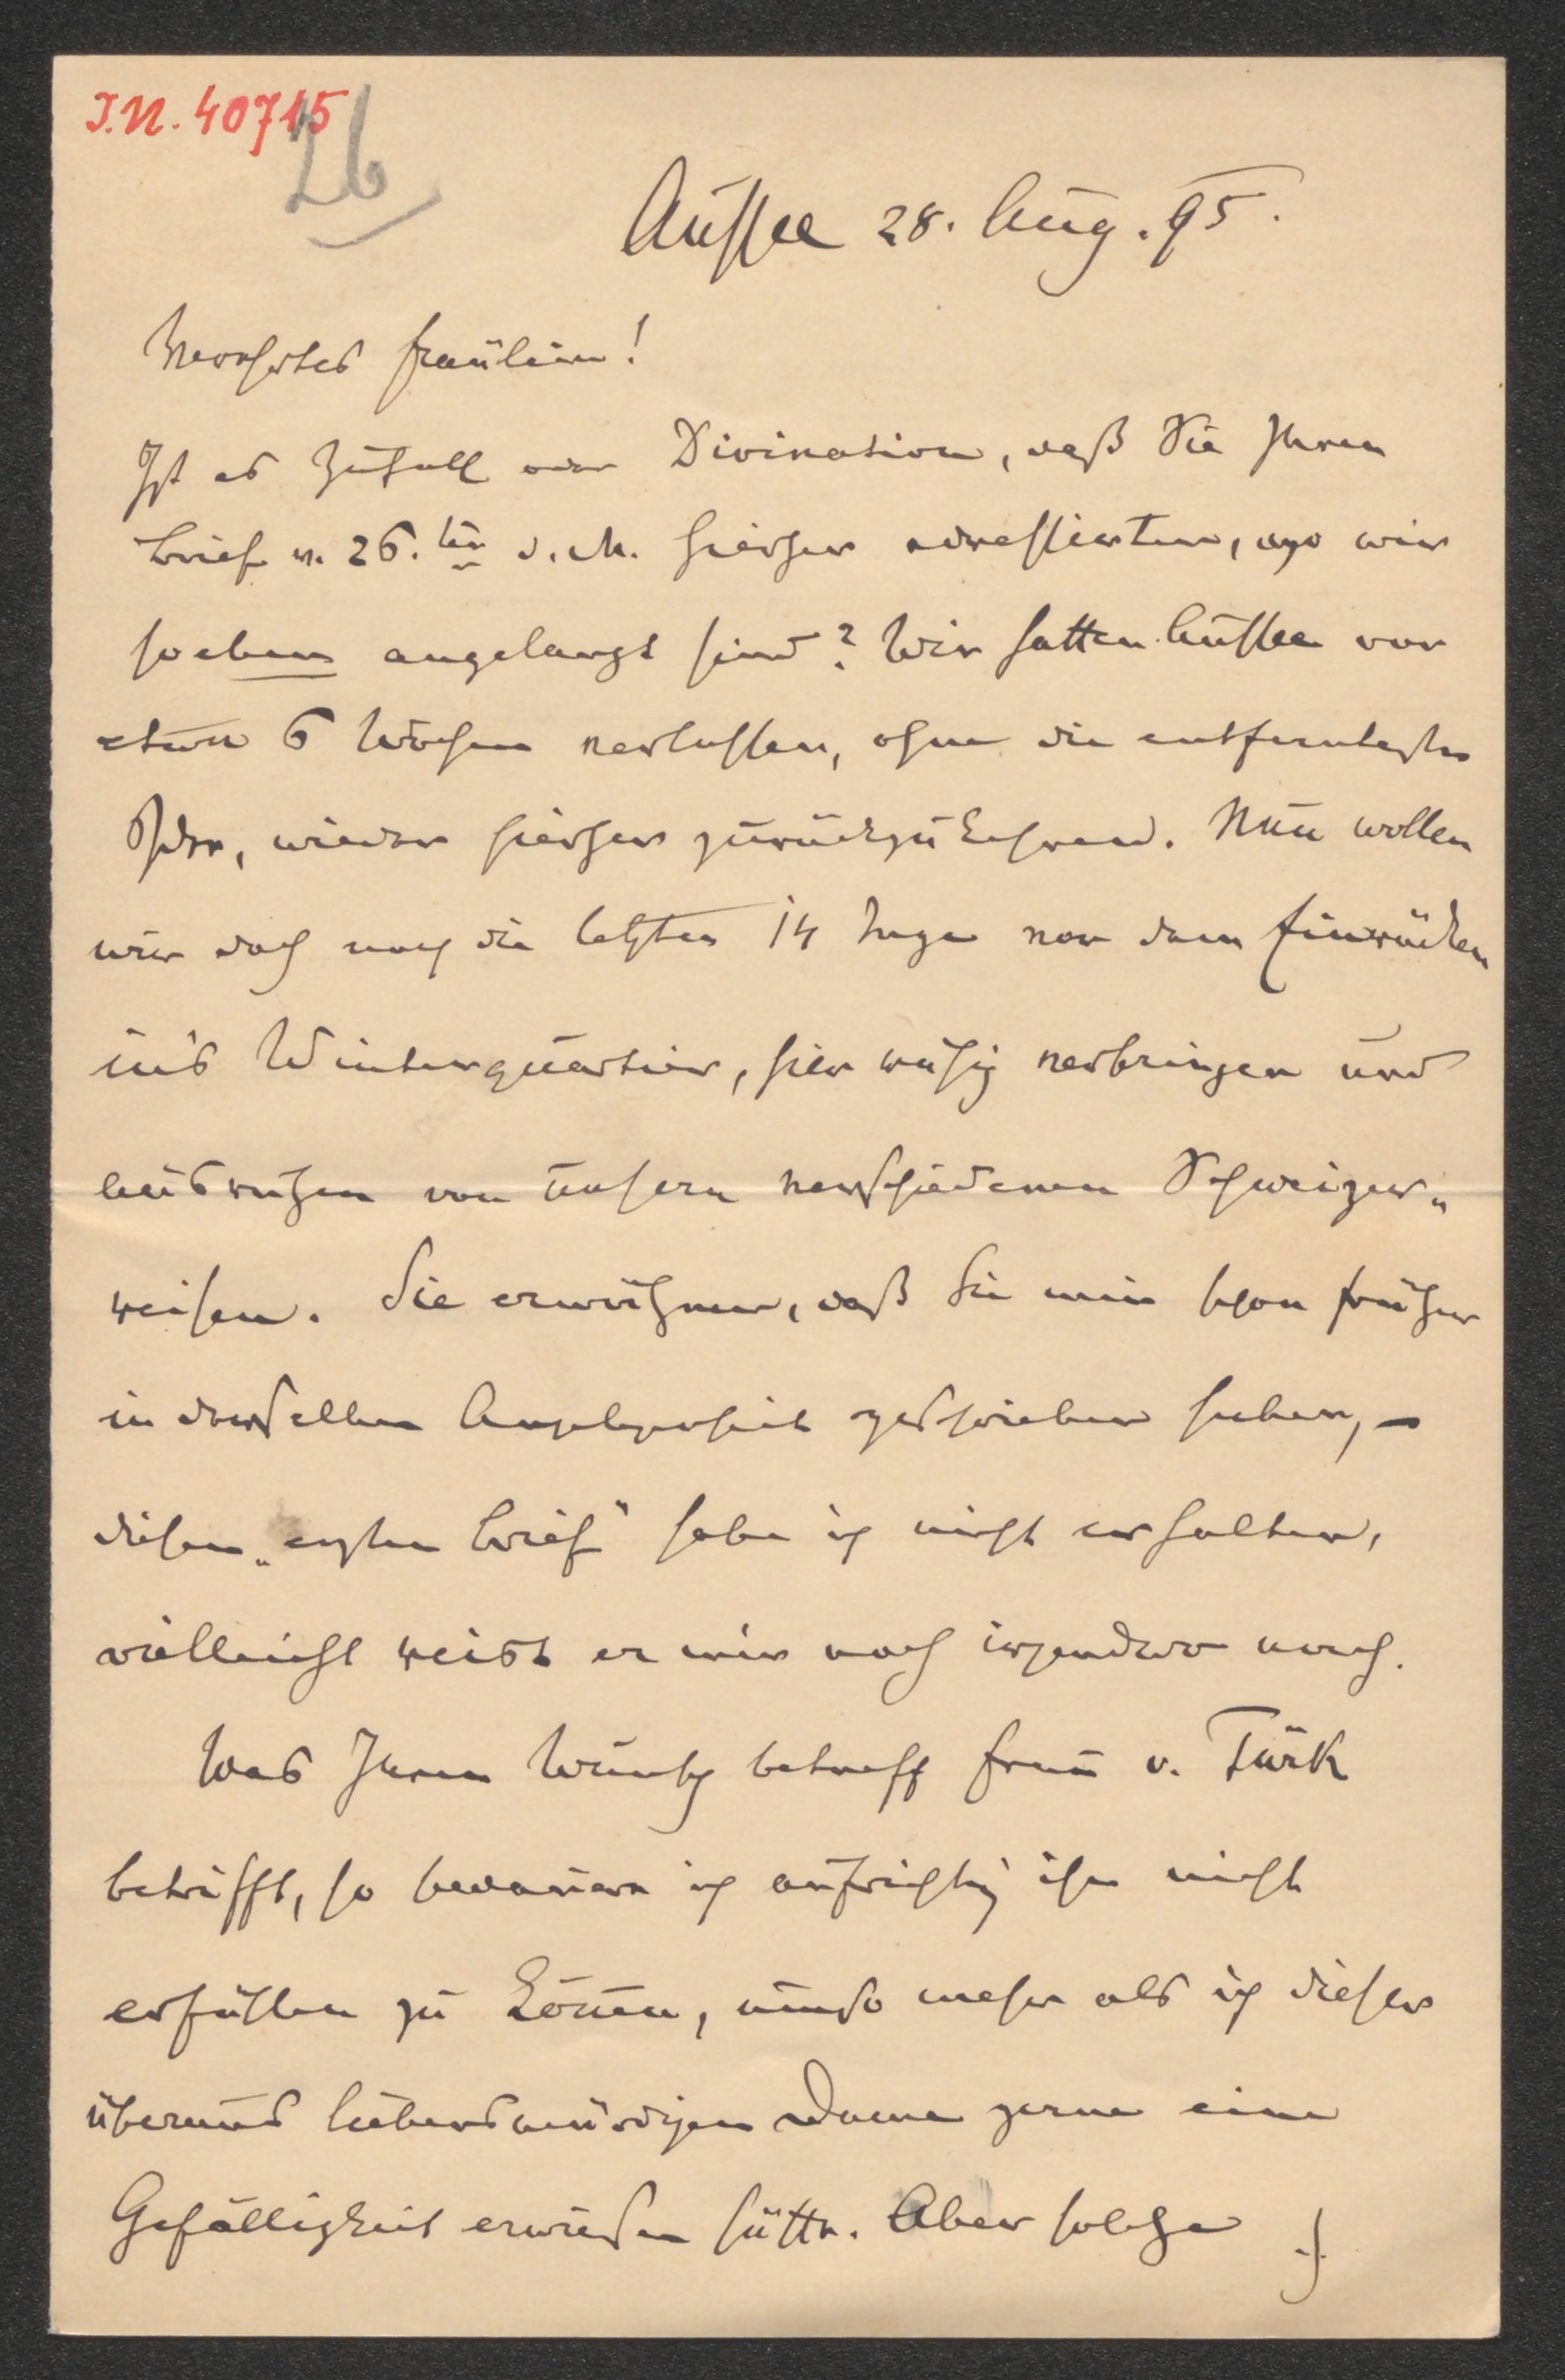 I.N. 40715
26
Aussee 28. Aug. 95.
Verehrtes Fräulein!
Ist es Zufall oder Divination, daß Sie Ihren
Brief v. 26.ten d. M. hierher adressierten, wo wir
soeben angelangt sind? Wir hatten Aussee vor
etwa 6 Wochen verlassen, ohne die entfernteste
Idee, wieder hierher zurückzukehren. Nun wollen
wir doch noch die letzten 14 Tage vor dem Einrücken
in's Winterquartier, hier ruhig verbringen und
ausruhen von unsern verschiedenen Schweizer„
reisen. Sie erwähnen, daß Sie mir schon früher
in derselben Angelegenheit geschrieben haben, –
diesen „ersten Brief“ habe ich nicht erhalten,
vielleicht reist er mir noch irgendwo nach.
Was Ihren Wunsch betreff Frau v. Türk
betrifft, so bedauere ich aufrichtig ihn nicht
erfüllen zu können, umso mehr als ich dieser
überaus liebenswürdigen Dame gerne eine
Gefälligkeit erwiesen hätte. Aber solche ./.